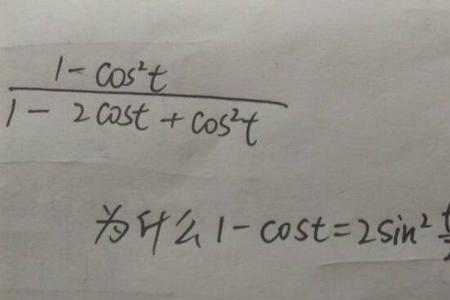 1-cos²t
1-2cost+cos²t
为什么1-cost=2sin² t/2